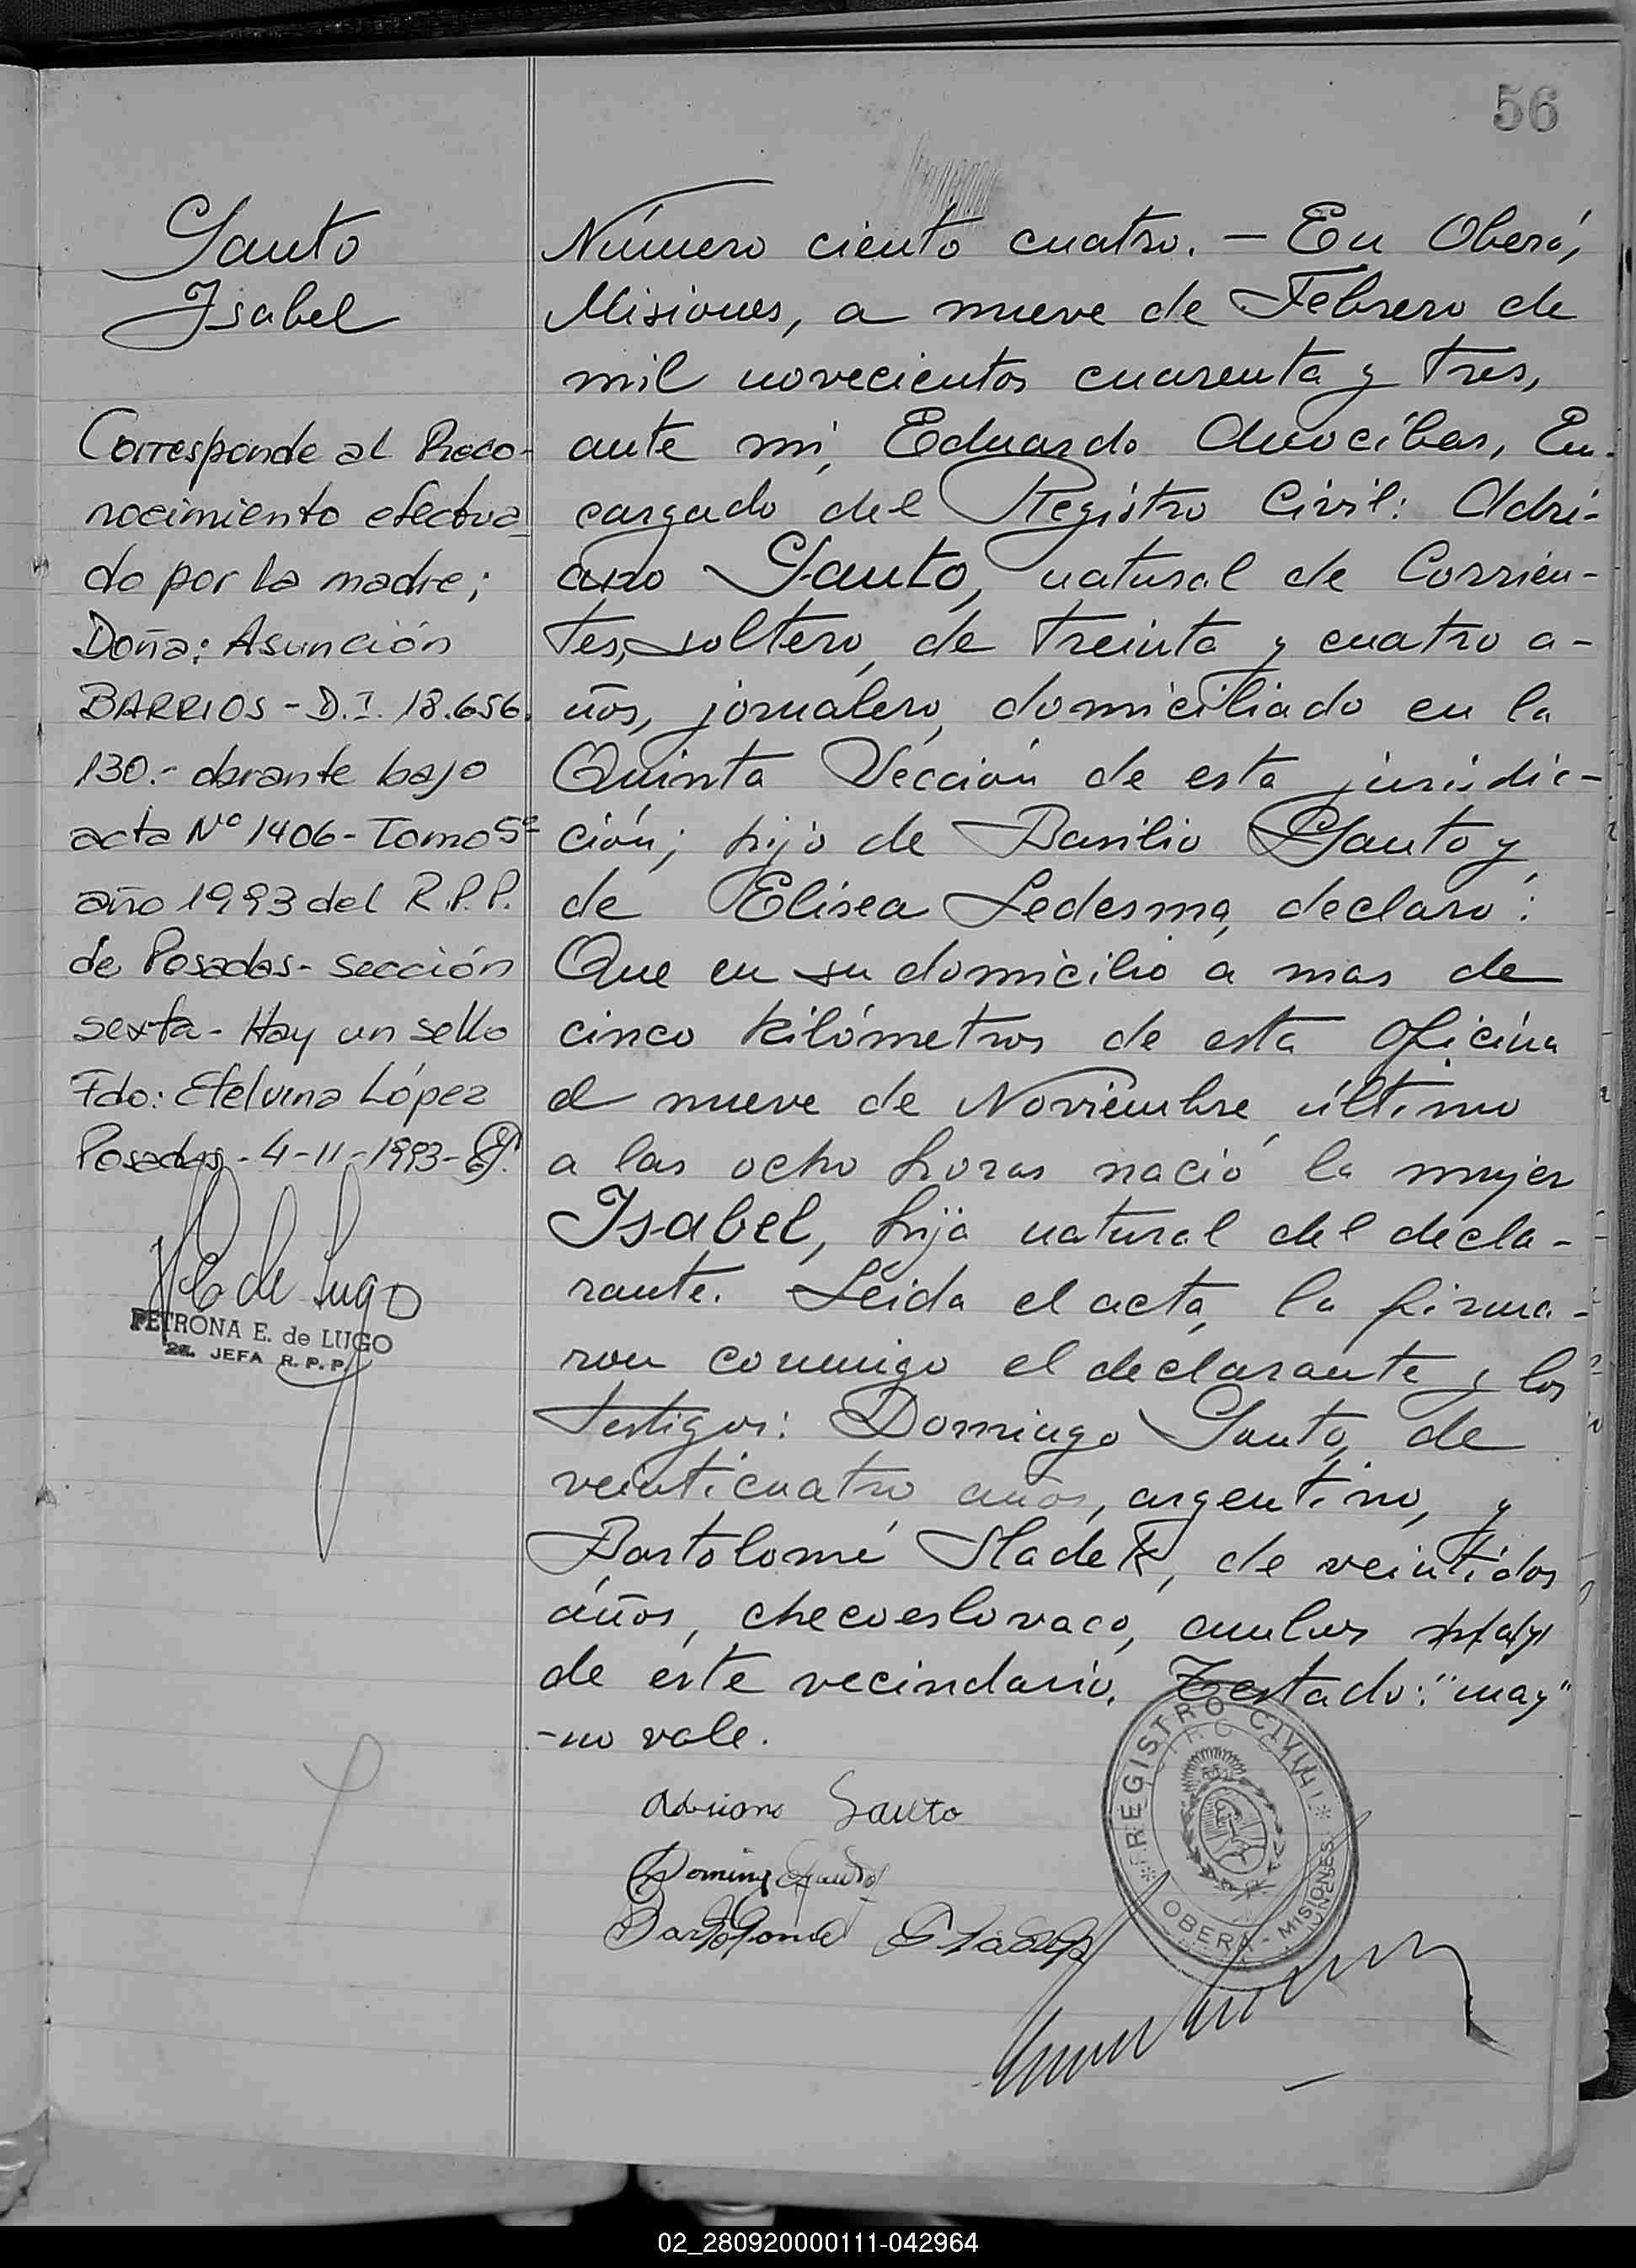 56
Santo
Isabel
Corresponde al Reco-
nocimiento efectua-
do por la madre;
Doña: Asunción
BARRIOS - D.I. 18.656.
130.- obrante bajo
acta Nº 1406 - Tomo 5º
año 1993 del R.P.P.
de Posadas - sección
sexta - Hay un sello
Fdo: Etelvina López
Posadas - 4-11-1993-
de Lugo
PETRONA E. de LUGO
2a. JEFA R.P.P.
Número ciento cuatro. - En Oberá,
Misiones, a nueve de Febrero de
mil novecientos cuarenta y tres,
ante mi, Eduardo Anocíbar, En-
cargado del Registro Civil: Adri-
ano Santo, natural de Corrien-
tes, soltero, de treinta y cuatro a-
ños, jornalero, domiciliado en la
Quinta Sección de esta jurisdic-
ción; hijo de Basilio Santo y
de Elisea Ledesma, declaró:
Que en su domicilio a mas de
cinco kilómetros de esta oficina
el nueve de Noviembre último
a las ocho horas nació la mujer
Isabel, hija natural del decla-
rante. Leida el acta, la firma-
ron conmigo el declarante y los
testigos: Domingo Santo, de
veinticuatro años, argentino, y
Bartolomé Sladek, de veintidos
años, checoeslovaco, ambos
de este vecindario. Testado: "may"
-no vale.
Adriano Santo
Domingo Santo
Bartolome Sladek
REGISTRO CIVIL
OBERA - MISIONES
02_280920000111-042964